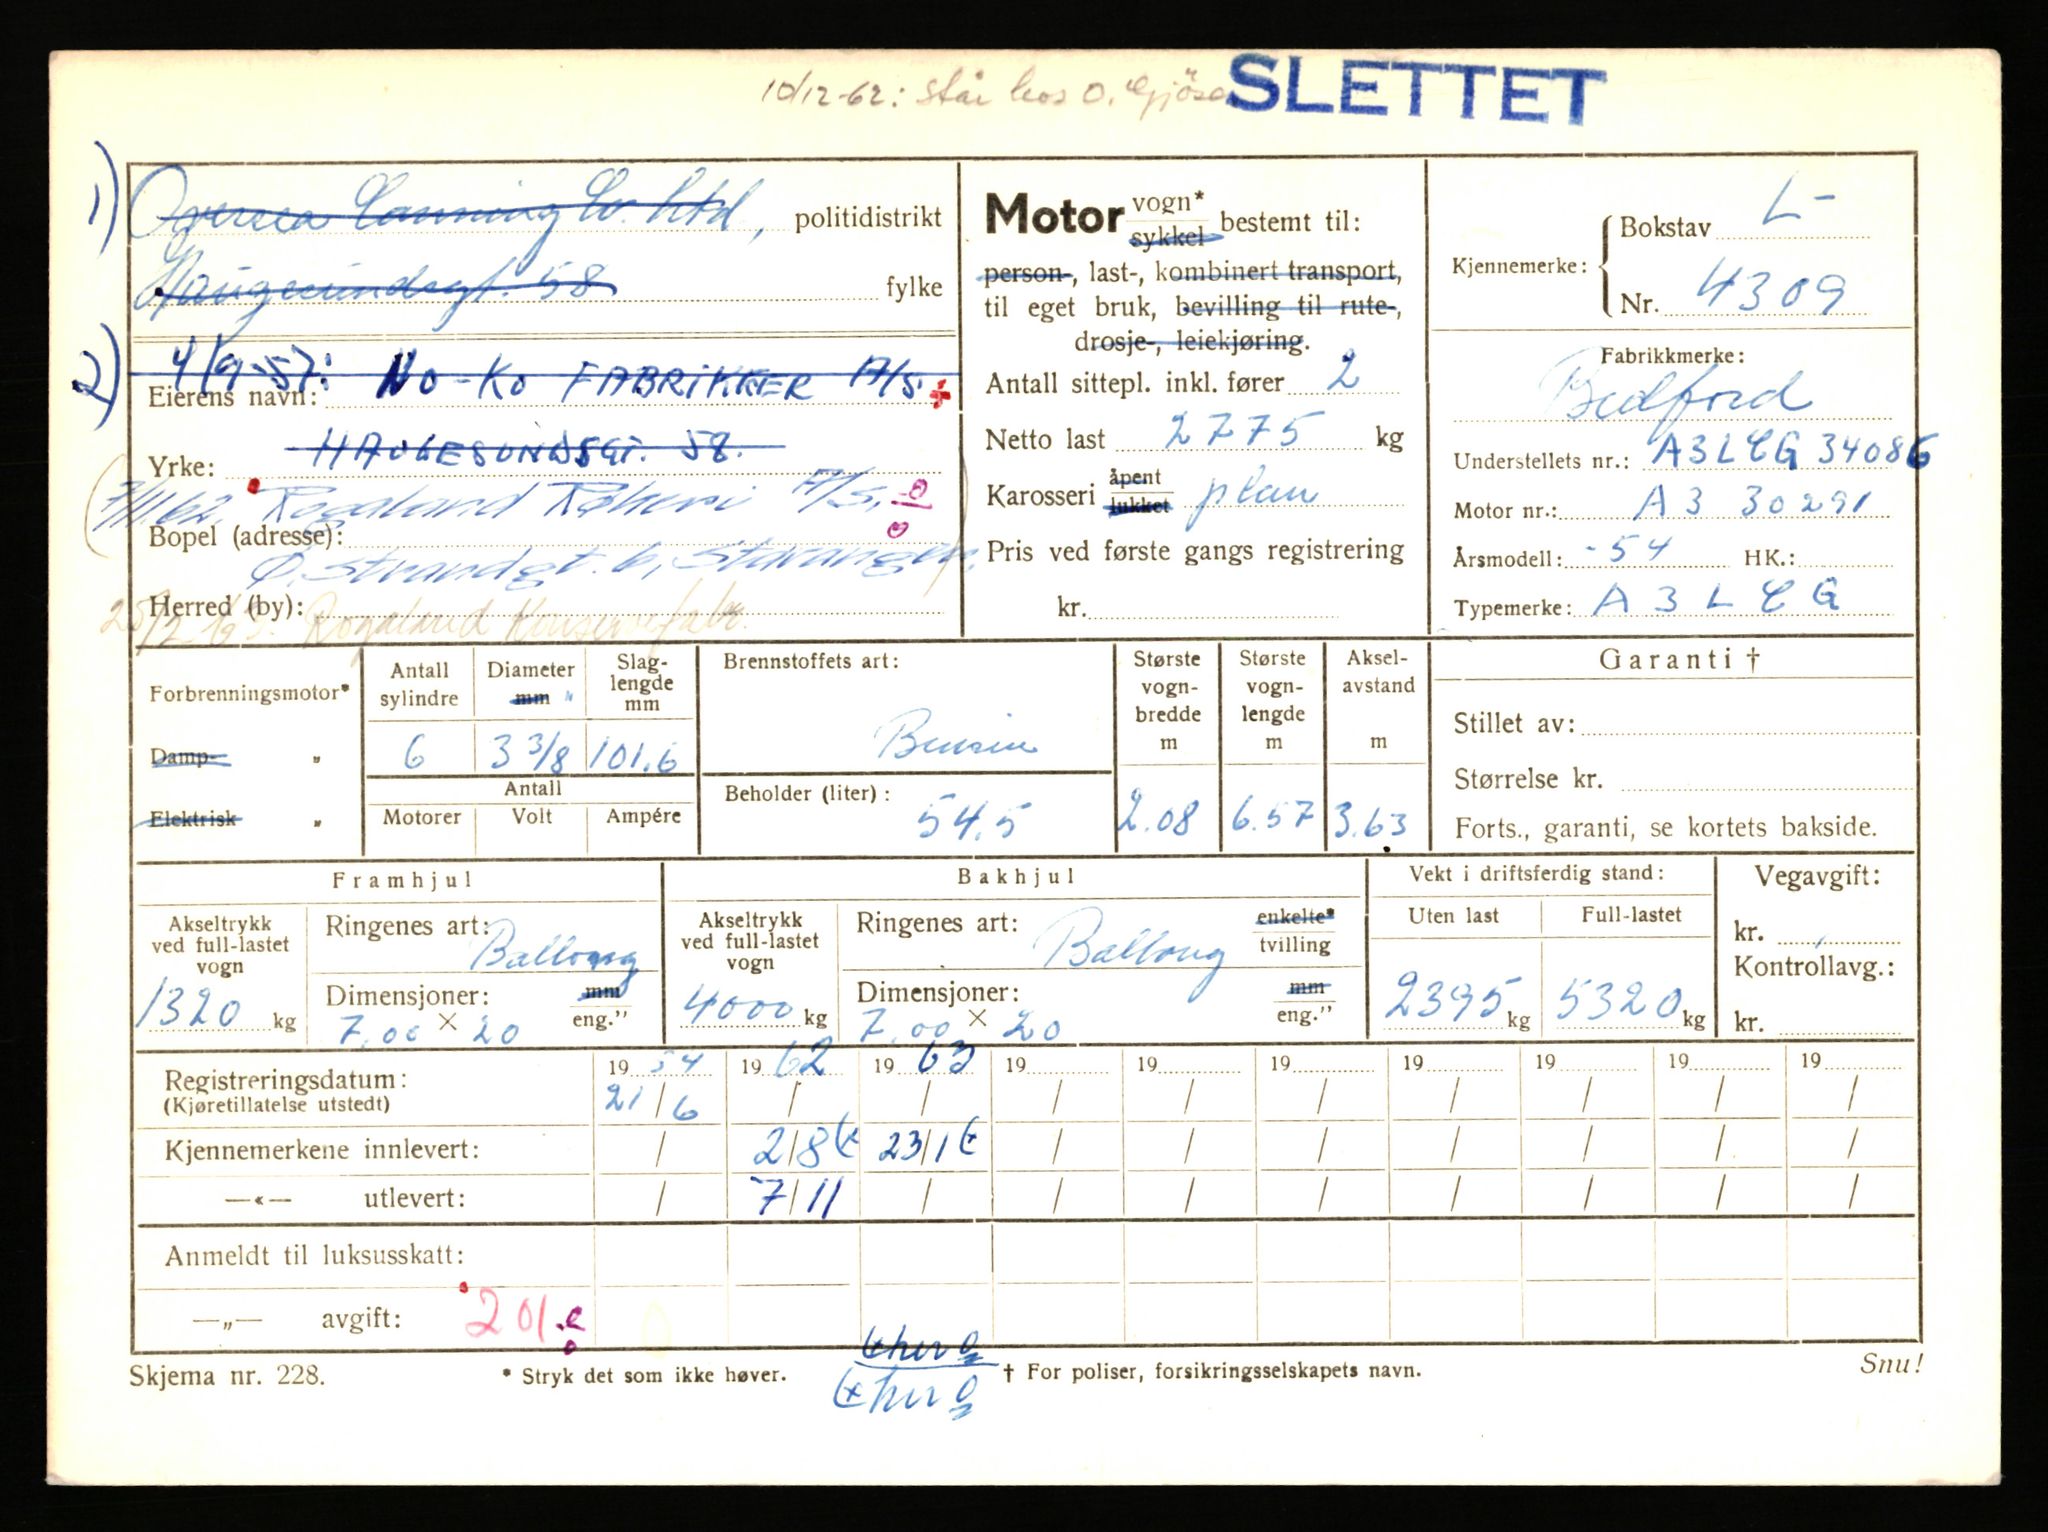 10/12-62: står hos O. Gjösa
SLETTET
1) Oversea Canning Co. Ltd, politidistrikt
Haugesundsgt. 58 fylke
2) 4/9-57: NO-KO FABRIKKER A/S.
Eierens navn:
HAUGESUNDSGT. 58.
Yrke:
7/11.62. Rogaland Røkeri A/S.
Bopel (adresse):
Ø. Strandgt. 6, Stavanger.
Herred (by):
Rogaland Konservefabr.
Motor vogn* sykkel bestemt til:
person-, last-, kombinert transport,
til eget bruk, bevilling til rute-,
drosje-, leiekjøring.
Antall sittepl. inkl. fører 2
Netto last 2775 kg
Karosseri åpent lukket plan
Pris ved første gangs registrering
kr.
Kjennemerke: Bokstav L-
Nr. 4309
Fabrikkmerke:
Bedford
Understellets nr.: A3LCG 34086
Motor nr.: A3 30291
Årsmodell: -54 HK.:
Typemerke: A3LCG
Forbrenningsmotor*
Damp- „
Elektrisk „
Antall sylindre 6
Diameter mm " 3 3/8
Slaglengde mm 101.6
Antall
Motorer Volt Ampére
Brennstoffets art:
Bensin
Beholder (liter): 54.5
Største vognbredde m 2.08
Største vognlengde m 6.57
Akselavstand m 3.63
Garanti †
Stillet av:
Størrelse kr.
Forts., garanti, se kortets bakside.
Framhjul
Akseltrykk ved full-lastet vogn 1320 kg
Ringenes art: Ballong
Dimensjoner: mm eng."
7,00 × 20
Bakhjul
Akseltrykk ved full-lastet vogn 4000 kg
Ringenes art: Ballong enkelte* tvilling
Dimensjoner: mm eng."
7,00 × 20
Vekt i driftsferdig stand:
Uten last Full-lastet
2395 kg 5320 kg
Vegavgift:
kr.
Kontrollavg.:
kr.
19 54 19 62 19 63 19 19 19 19 19 19 19
Registreringsdatum: 21/6 / / / / / / / / /
(Kjøretillatelse utstedt)
Kjennemerkene innlevert: / 2/8 23/1 / / / / / / /
—«— utlevert: / 7/11 / / / / / / / /
Anmeldt til luksusskatt:
—„— avgift: 201.
Skjema nr. 228.
* Stryk det som ikke høver.
her
her
† For poliser, forsikringsselskapets navn.
Snu!